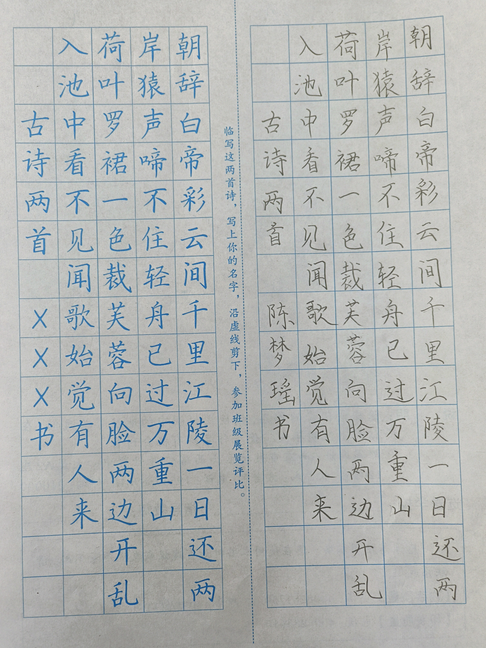 朝辞白帝彩云间千里江陵一日还两
岸猿声啼不住轻舟已过万重山
荷叶罗裙一色裁芙蓉向脸两边开乱
入池中看不见闻歌始觉有人来
古诗两首 X X X 书
临写这两首诗，写上你的名字，沿虚线剪下，参加班级展览评比。
朝辞白帝彩云间千里江陵一日还两
岸猿声啼不住轻舟已过万重山
荷叶罗裙一色裁芙蓉向脸两边开乱
入池中看不见闻歌始觉有人来
古诗两首 陈梦瑶书